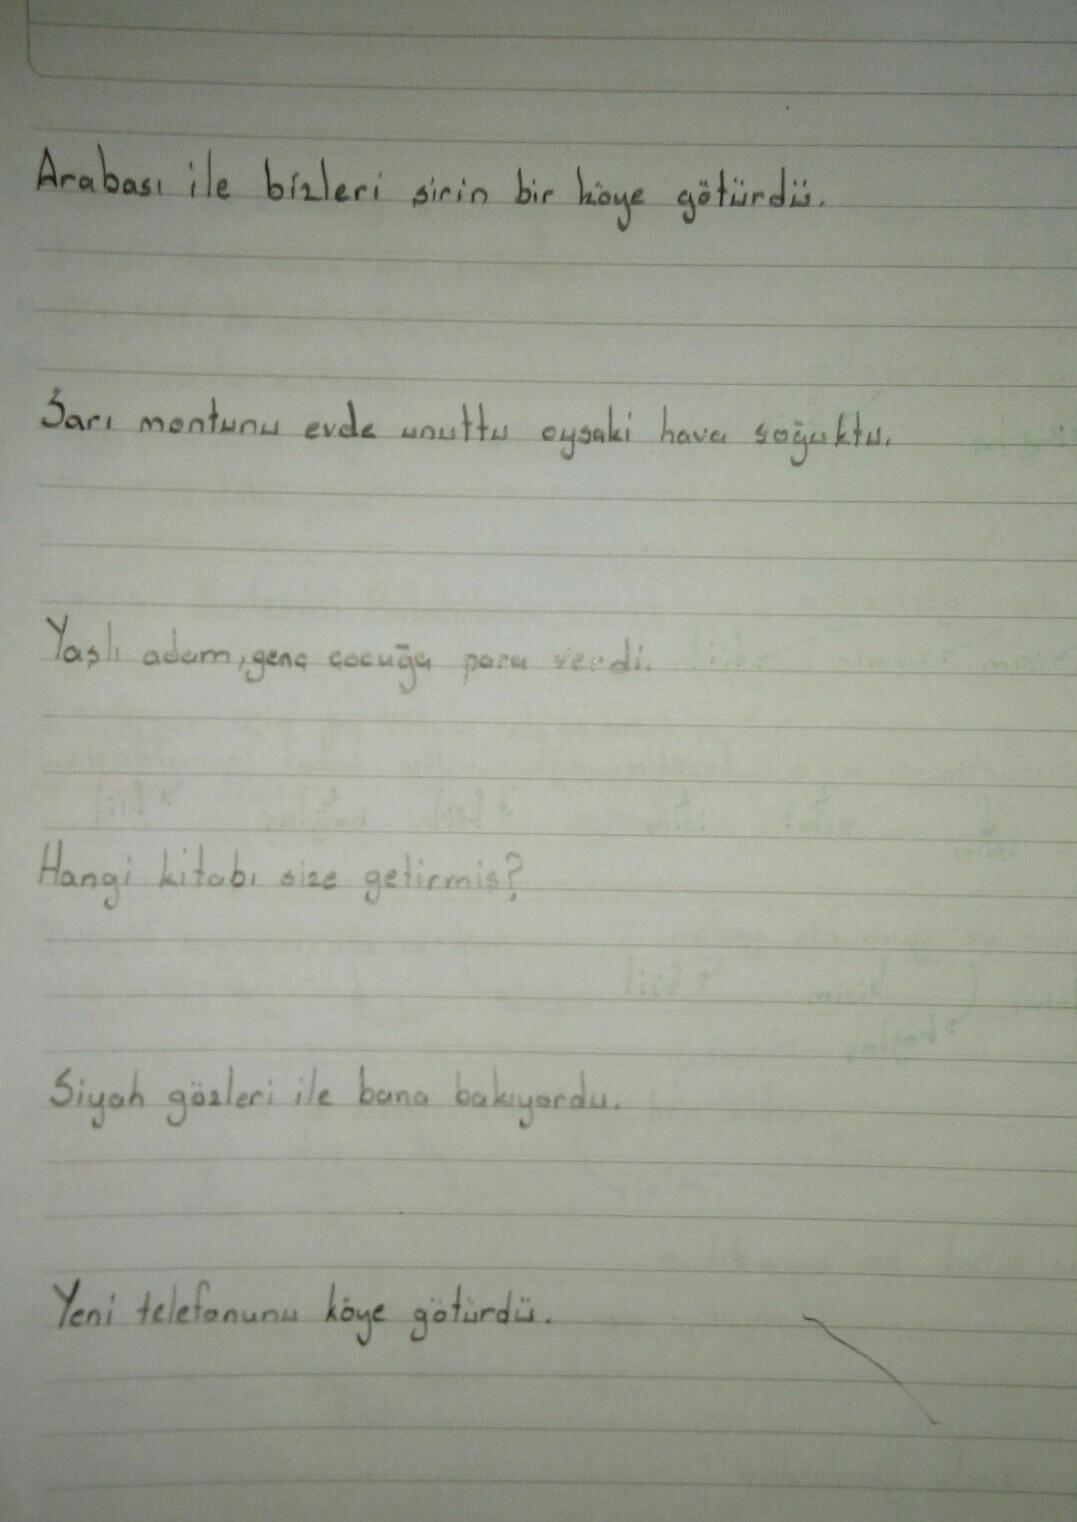 Arabası ile bizleri şirin bir köye götürdü.
Sarı montunu evde unuttu oysaki hava soğuktu.
Yaşlı adam, genç çocuğa para verdi.
Hangi kitabı size getirmiş?
Siyah gözleri ile bana bakıyordu.
Yeni telefonunu köye götürdü.